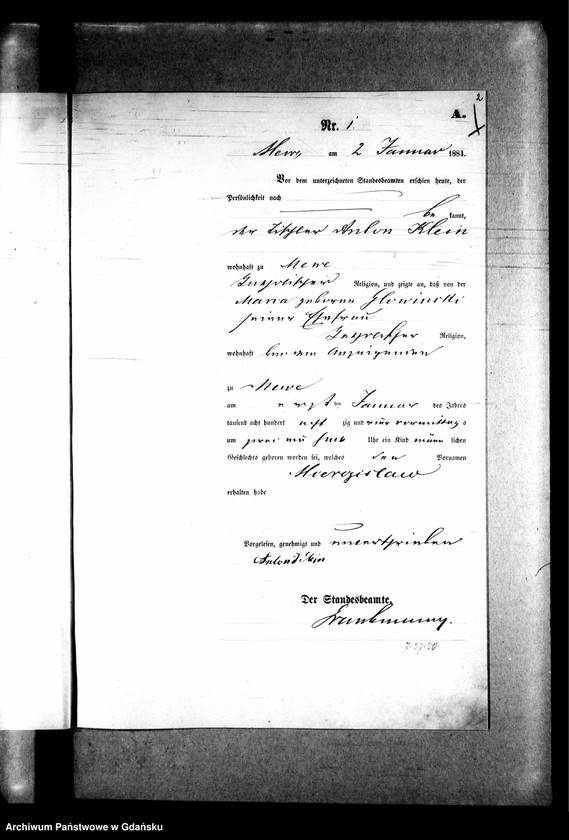 2
A.
Nr. 1
Mewe, am 2 Januar 1884.
Vor dem unterzeichneten Standesbeamten erschien heute, der
Persönlichkeit nach
be kannt,
der Tischler Anton Klein
wohnhaft zu Mewe
katholischer Religion, und zeigte an, daß von der
Maria geborene Glowinski
seiner Ehefrau
katholischer Religion,
wohnhaft bei dem Anzeigenden
zu Mewe
am ersten Januar des Jahres
tausend acht hundert acht zig und vier vormittags
um Uhr ein Kind männ lichen
Geschlechts geboren worden sei, welches den Vornamen
Miecgislaw
erhalten habe
Vorgelesen, genehmigt und unterschrieben
Anton Klein
Der Standesbeamte.
7.37.50
Archiwum Państwowe w Gdańsku